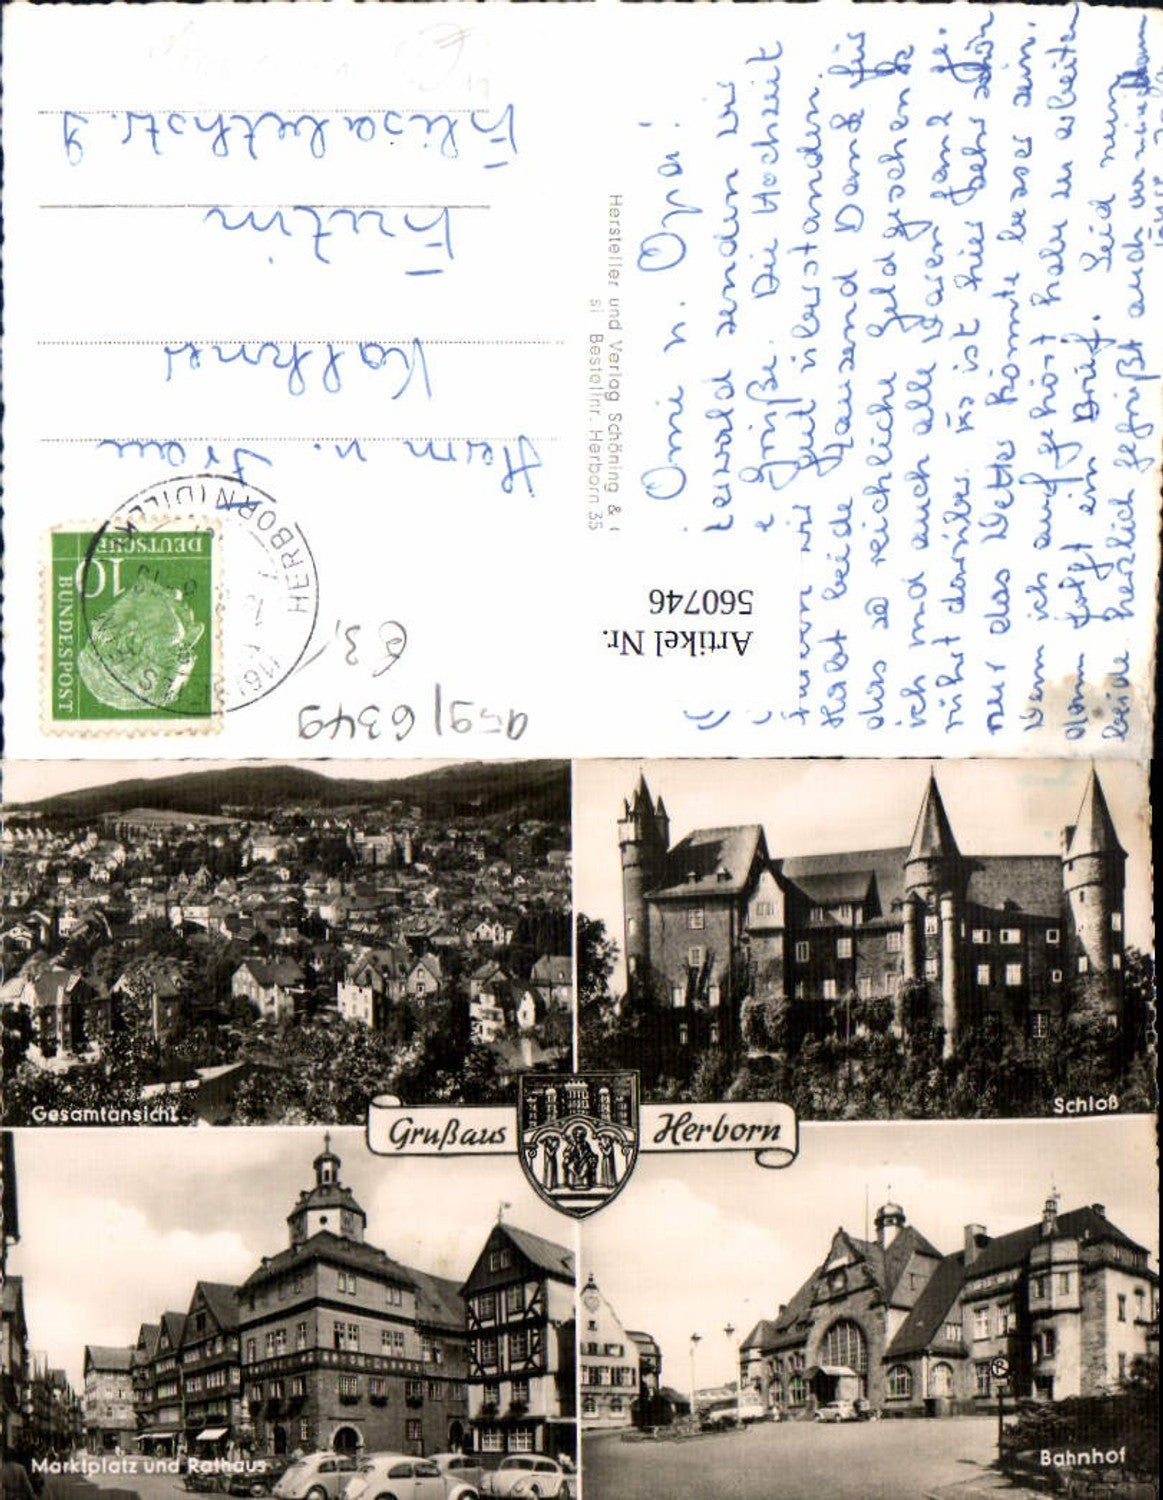 Herrn u. Frau
Kathner
Eutin
Elisabethstr. 9
DEUTSCHE
BUNDESPOST
10
HERBORN (DILLKR
(16)
Hersteller und Verlag Schöning &
Bestellnr. Herborn 35
Artikel Nr.
560746
63,
Omi u. Opa!
senden wir
e Grüße. Die Hochzeit
wir gut überstanden.
Habt beide tausend Dank für
das so reichliche Geldgeschenk
ich und auch alle waren ganz ge-
rührt darüber. Es ist hier sehr schön
nur das Wetter könnte besser sein.
Wenn ich aufgehört habe zu arbeiten
dann folgt ein Brief. Seid nun
beide herzlich gegrüßt auch
Gesamtansicht
Schloß
Gruß aus Herborn
Marktplatz und Rathaus
Bahnhof